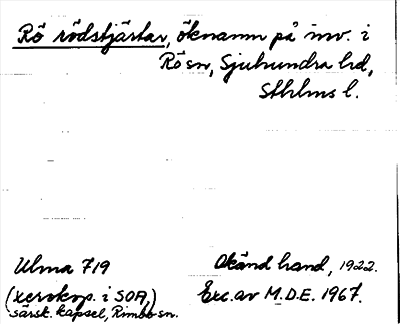 Rö rödstjärtar, öknamn på inv. i
Rö sn, Sjuhundra hd,
Sthlms l.
Ulma 719
Okänd hand, 1922.
(xerokop. i SOA,)
särsk. kapsel, Rimbo sn.
Exc. av M.D.E. 1967.